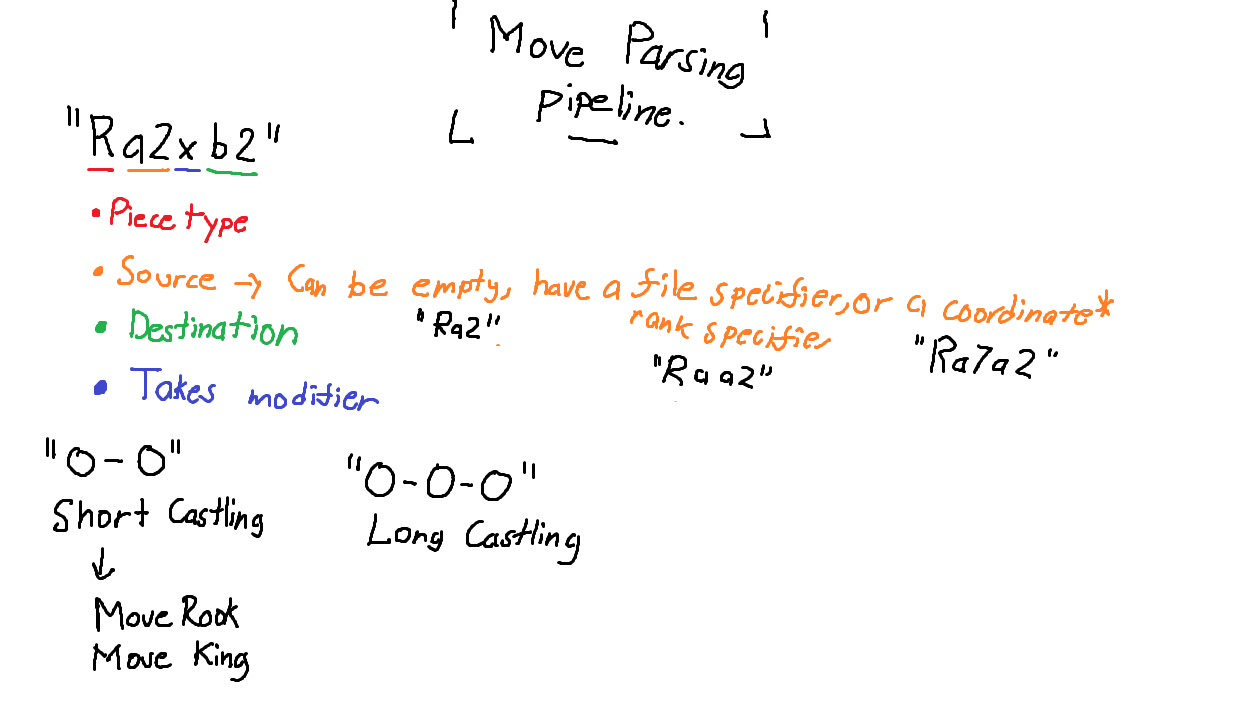 Move Parsing
Pipeline.
"Ra2xb2"
• Piece type
• Source → Can be empty, have a file specifier, or a coordinate*
rank specifier
• Destination
"Ra2"
"Raa2"
"Ra7a2"
• Takes modifier
"O-O"
Short Castling
↓
Move Rook
Move King
"O-O-O"
Long Castling